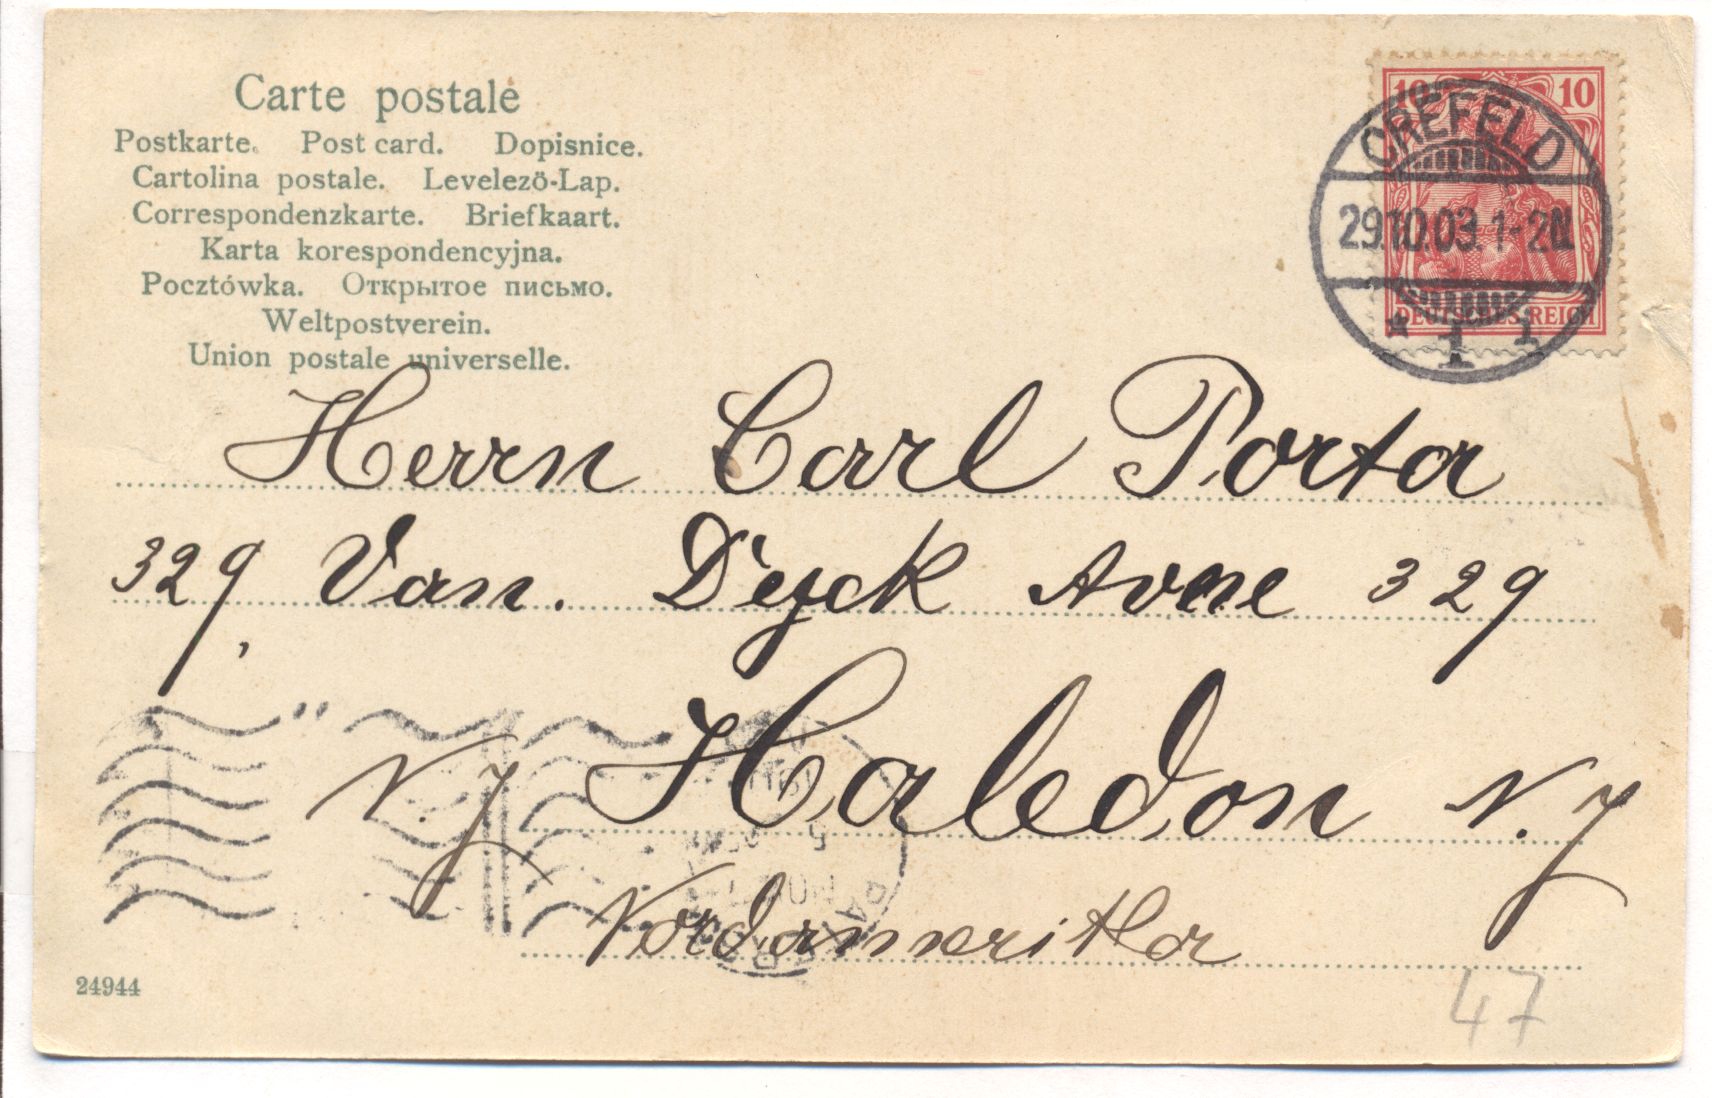 Carte postale
Postkarte. Post card. Dopisnice.
Cartolina postale. Levelező-Lap.
Correspondenzkarte. Briefkaart.
Karta korespondencyjna.
Pocztówka. Открытое письмо.
Weltpostverein.
Union postale universelle.
10 10
CREFELD
29.10.03.1-2N.
DEUTSCHES REICH
* 1 1
Herrn Carl Porta
329 Van. Dyck Avne 329
, Haledon N.J
" N.J
Nordamerika
24944
47